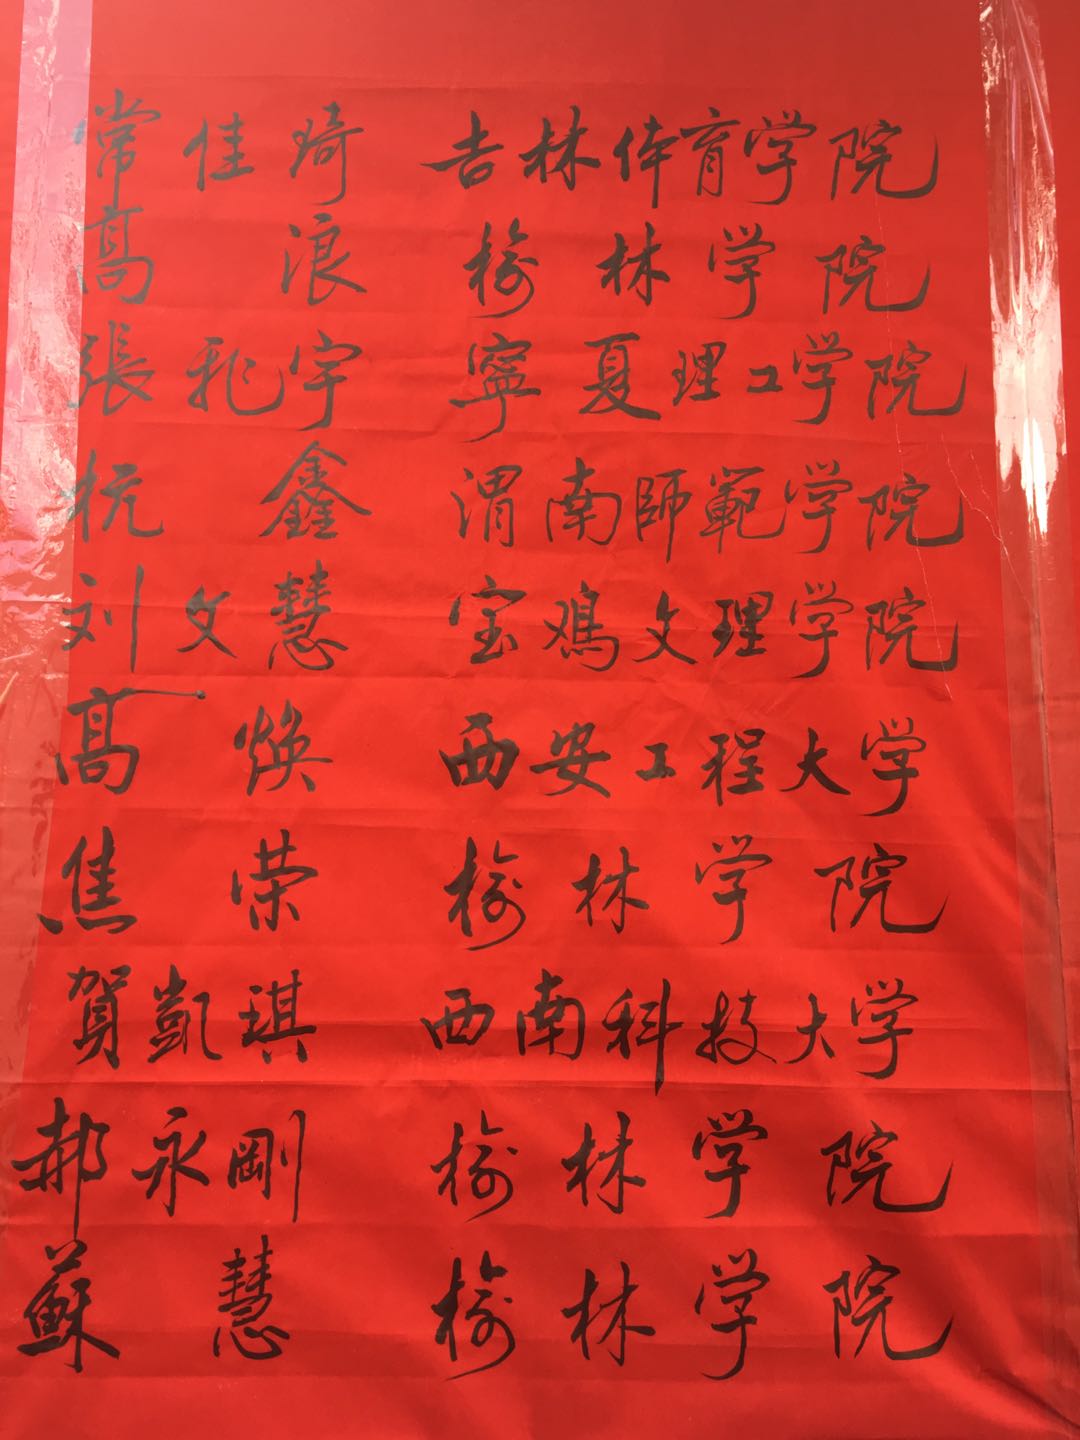 常佳琦 吉林体育学院
高浪 榆林学院
張宇 寧夏理工学院
杭鑫 渭南師範学院
刘文慧 宝鸡文理学院
高焕 西安工程大学
焦荣 榆林学院
賀凱琪 西南科技大学
郝永剛 榆林学院
蘇慧 榆林学院